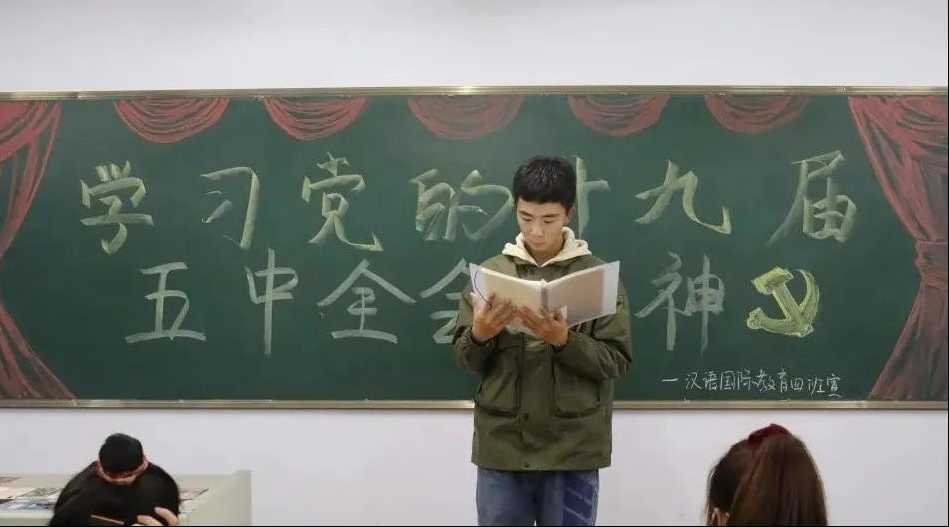 学习党的十九届
五中全会 神
—汉语国际教育四班宣